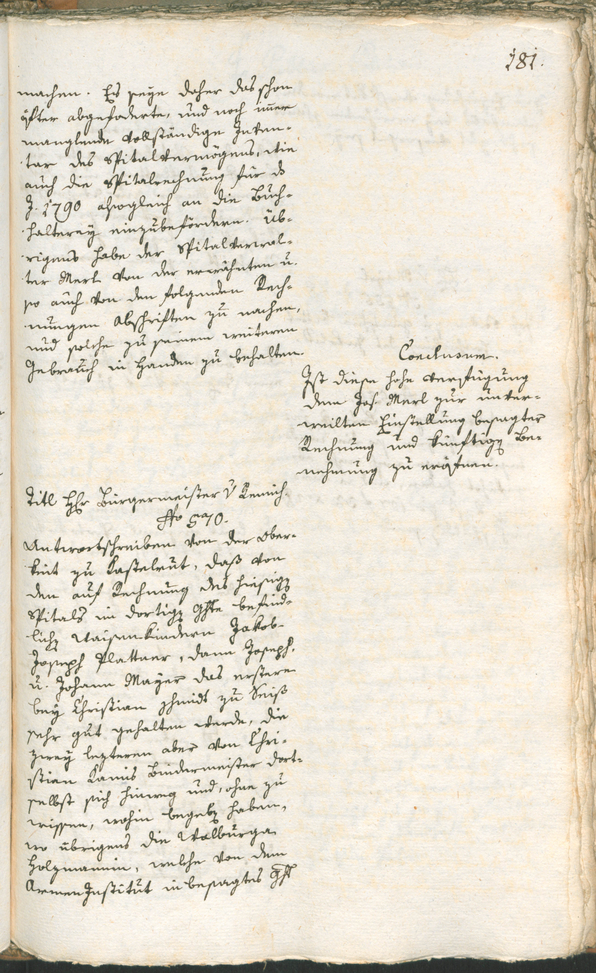 181.
machen. Es seye daher das schon
öfter abgefoderte, und noch imer
manglende vollständige Inven-
tar des Spitalvermögens, wie
auch die Spitalrechnung für d
J. 1790 alsogleich an die Buch-
halterey einzubefördern. Üb-
rigens habe der Spitalverwal-
ter Merl von der erwähnten u.
so auch von den folgenden Rech-
nungen Abschriften zu machen,
und solche zu seinem weiteren
Gebrauch in Handen zu behalten.
Conclusum.
Ist diese hohe Verfügung
dem Jos. Merl zur unver-
weilten Einstellung besagter
Rechnung und künftigen Be-
nehmung zu eröfnen.
Titl Hr Bürgermeister v Remich.
No 570.
Antwortschreiben von der Ober-
keit zu Kastelrut, daß von
den auf Rechnung des hiesigen
Spitals in dortigen Ghte befind-
lichen Waisenkindern Jakob-
Joseph Plattner, dann Joseph,
u. Johann Mayer das erstere
bey Christian Schmids zu Seiß
sehr gut gehalten werde, die
zwey lezteren aber von Chri-
stian Kamis Bindermeister dort-
selbst sich hinweg und, ohne zu
wissen, wohin begeben haben,
wo übrigens die Walburga
Holzmanin, welche von dem
Armen Institut in besagtes Ght